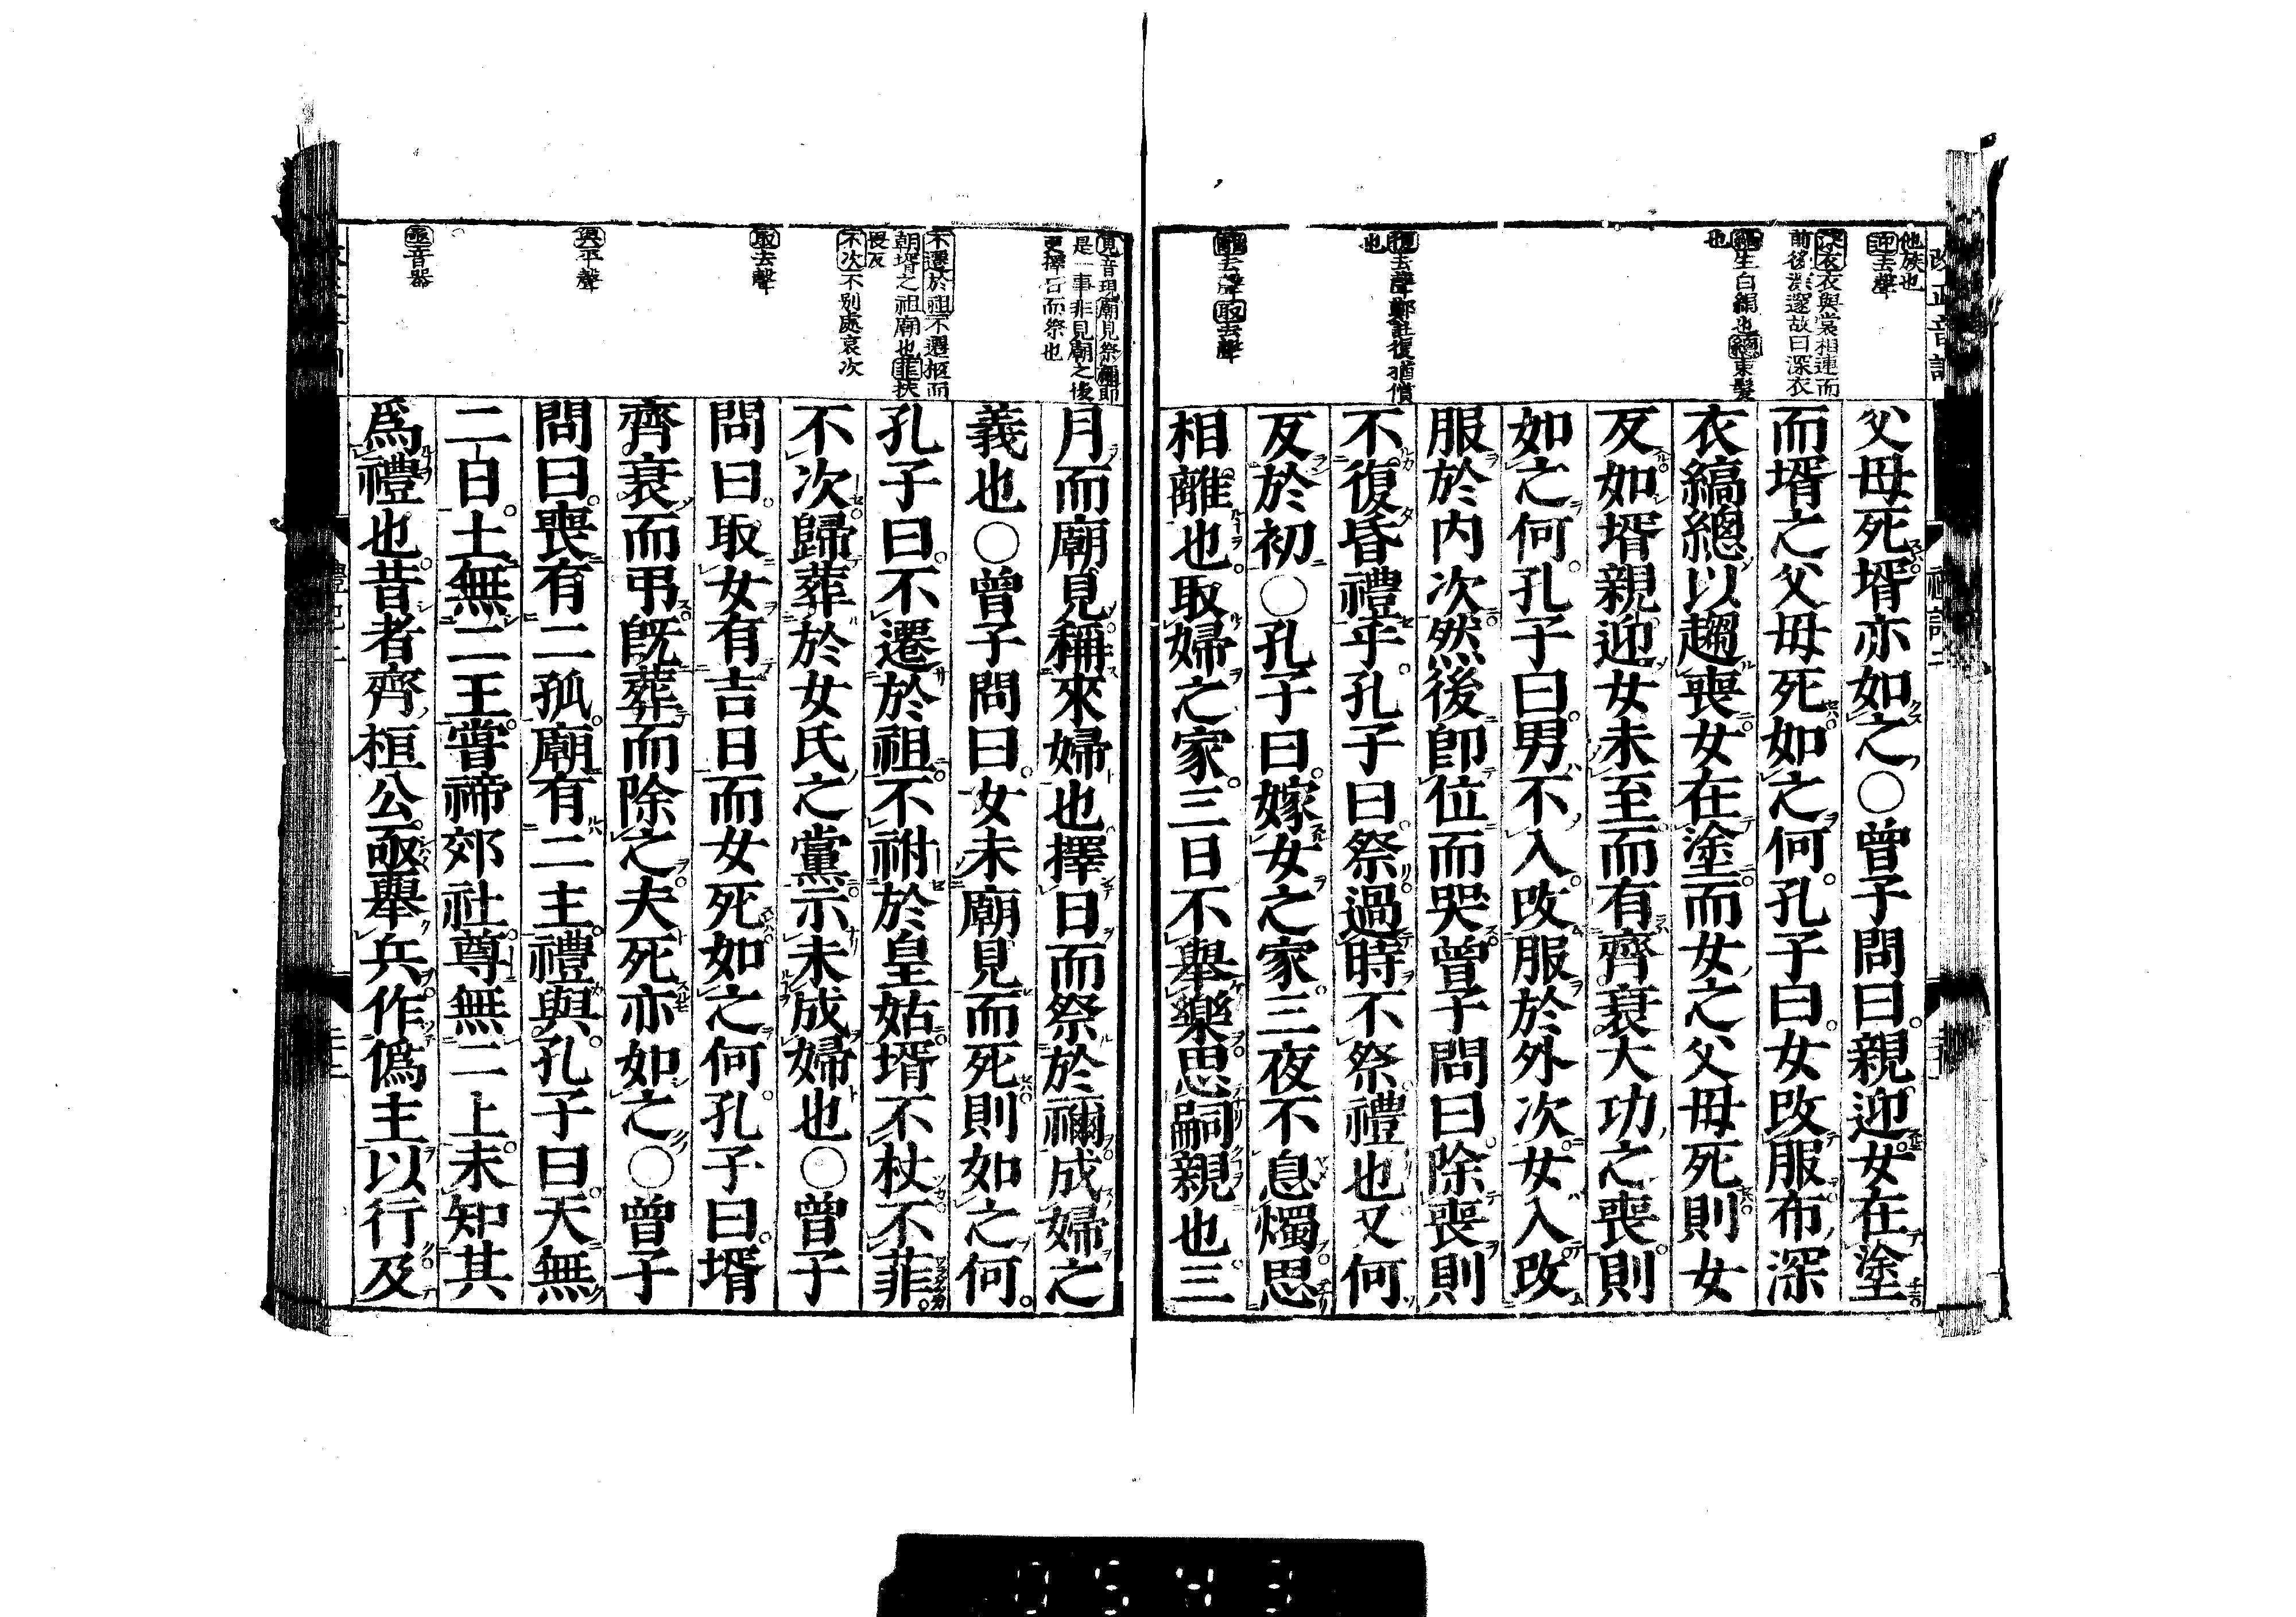 他族也
迎去聲
深衣衣與裳相連而
前後深邃故曰深衣
縞生白絹也總束髮
也
復去聲鄭註復猶償
也
離去聲取去聲
父母死壻亦如之○曾子問曰親迎女在塗
而壻之父母死如之何孔子曰女改服布深
衣縞總以趨喪女在塗而女之父母死則女
反如壻親迎女未至而有齊衰大功之喪則
如之何孔子曰男不入改服於外次女入改
服於内次然後卽位而哭曾子問曰除喪則
不復昏禮乎孔子曰祭過時不祭禮也又何
反於初○孔子曰嫁女之家三夜不息燭思
相離也取婦之家三日不舉樂思嗣親也三
見音現廟見祭禰卽
是一事非見廟之後
更擇日而祭也
不遷於祖不遷柩而
朝壻之祖廟也菲扶
畏反
不次不別處哀次
取去聲
與平聲
亟音器
月而廟見稱來婦也擇日而祭於禰成婦之
義也○曾子問曰女未廟見而死則如之何
孔子曰不遷於祖不祔於皇姑壻不杖不菲
不次歸葬於女氏之黨示未成婦也○曾子
問曰取女有吉日而女死如之何孔子曰壻
齊衰而弔旣葬而除之夫死亦如之○曾子
問曰喪有二孤廟有二主禮與孔子曰天無
二日土無二王嘗禘郊社尊無二上未知其
爲禮也昔者齊桓公亟舉兵作僞主以行及